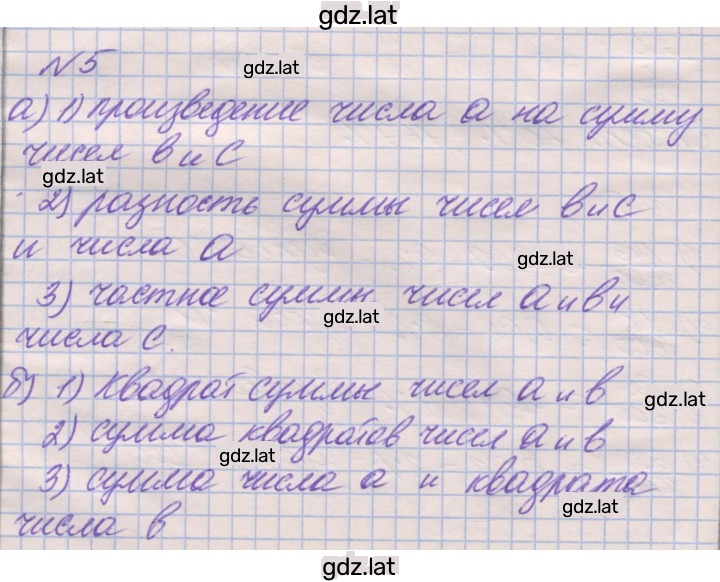 gdz.lat
№5
gdz.lat
а) 1) произведение числа а на сумму
чисел в и с
gdz.lat
2) разность суммы чисел в и с
и числа а
gdz.lat
3) частное суммы чисел а и в и
gdz.lat
числа с.
б) 1) Квадрат суммы чисел а и в
gdz.lat
2) сумма квадратов чисел а и в
gdz.lat
3) сумма числа а и квадрата
gdz.lat
числа в
gdz.lat